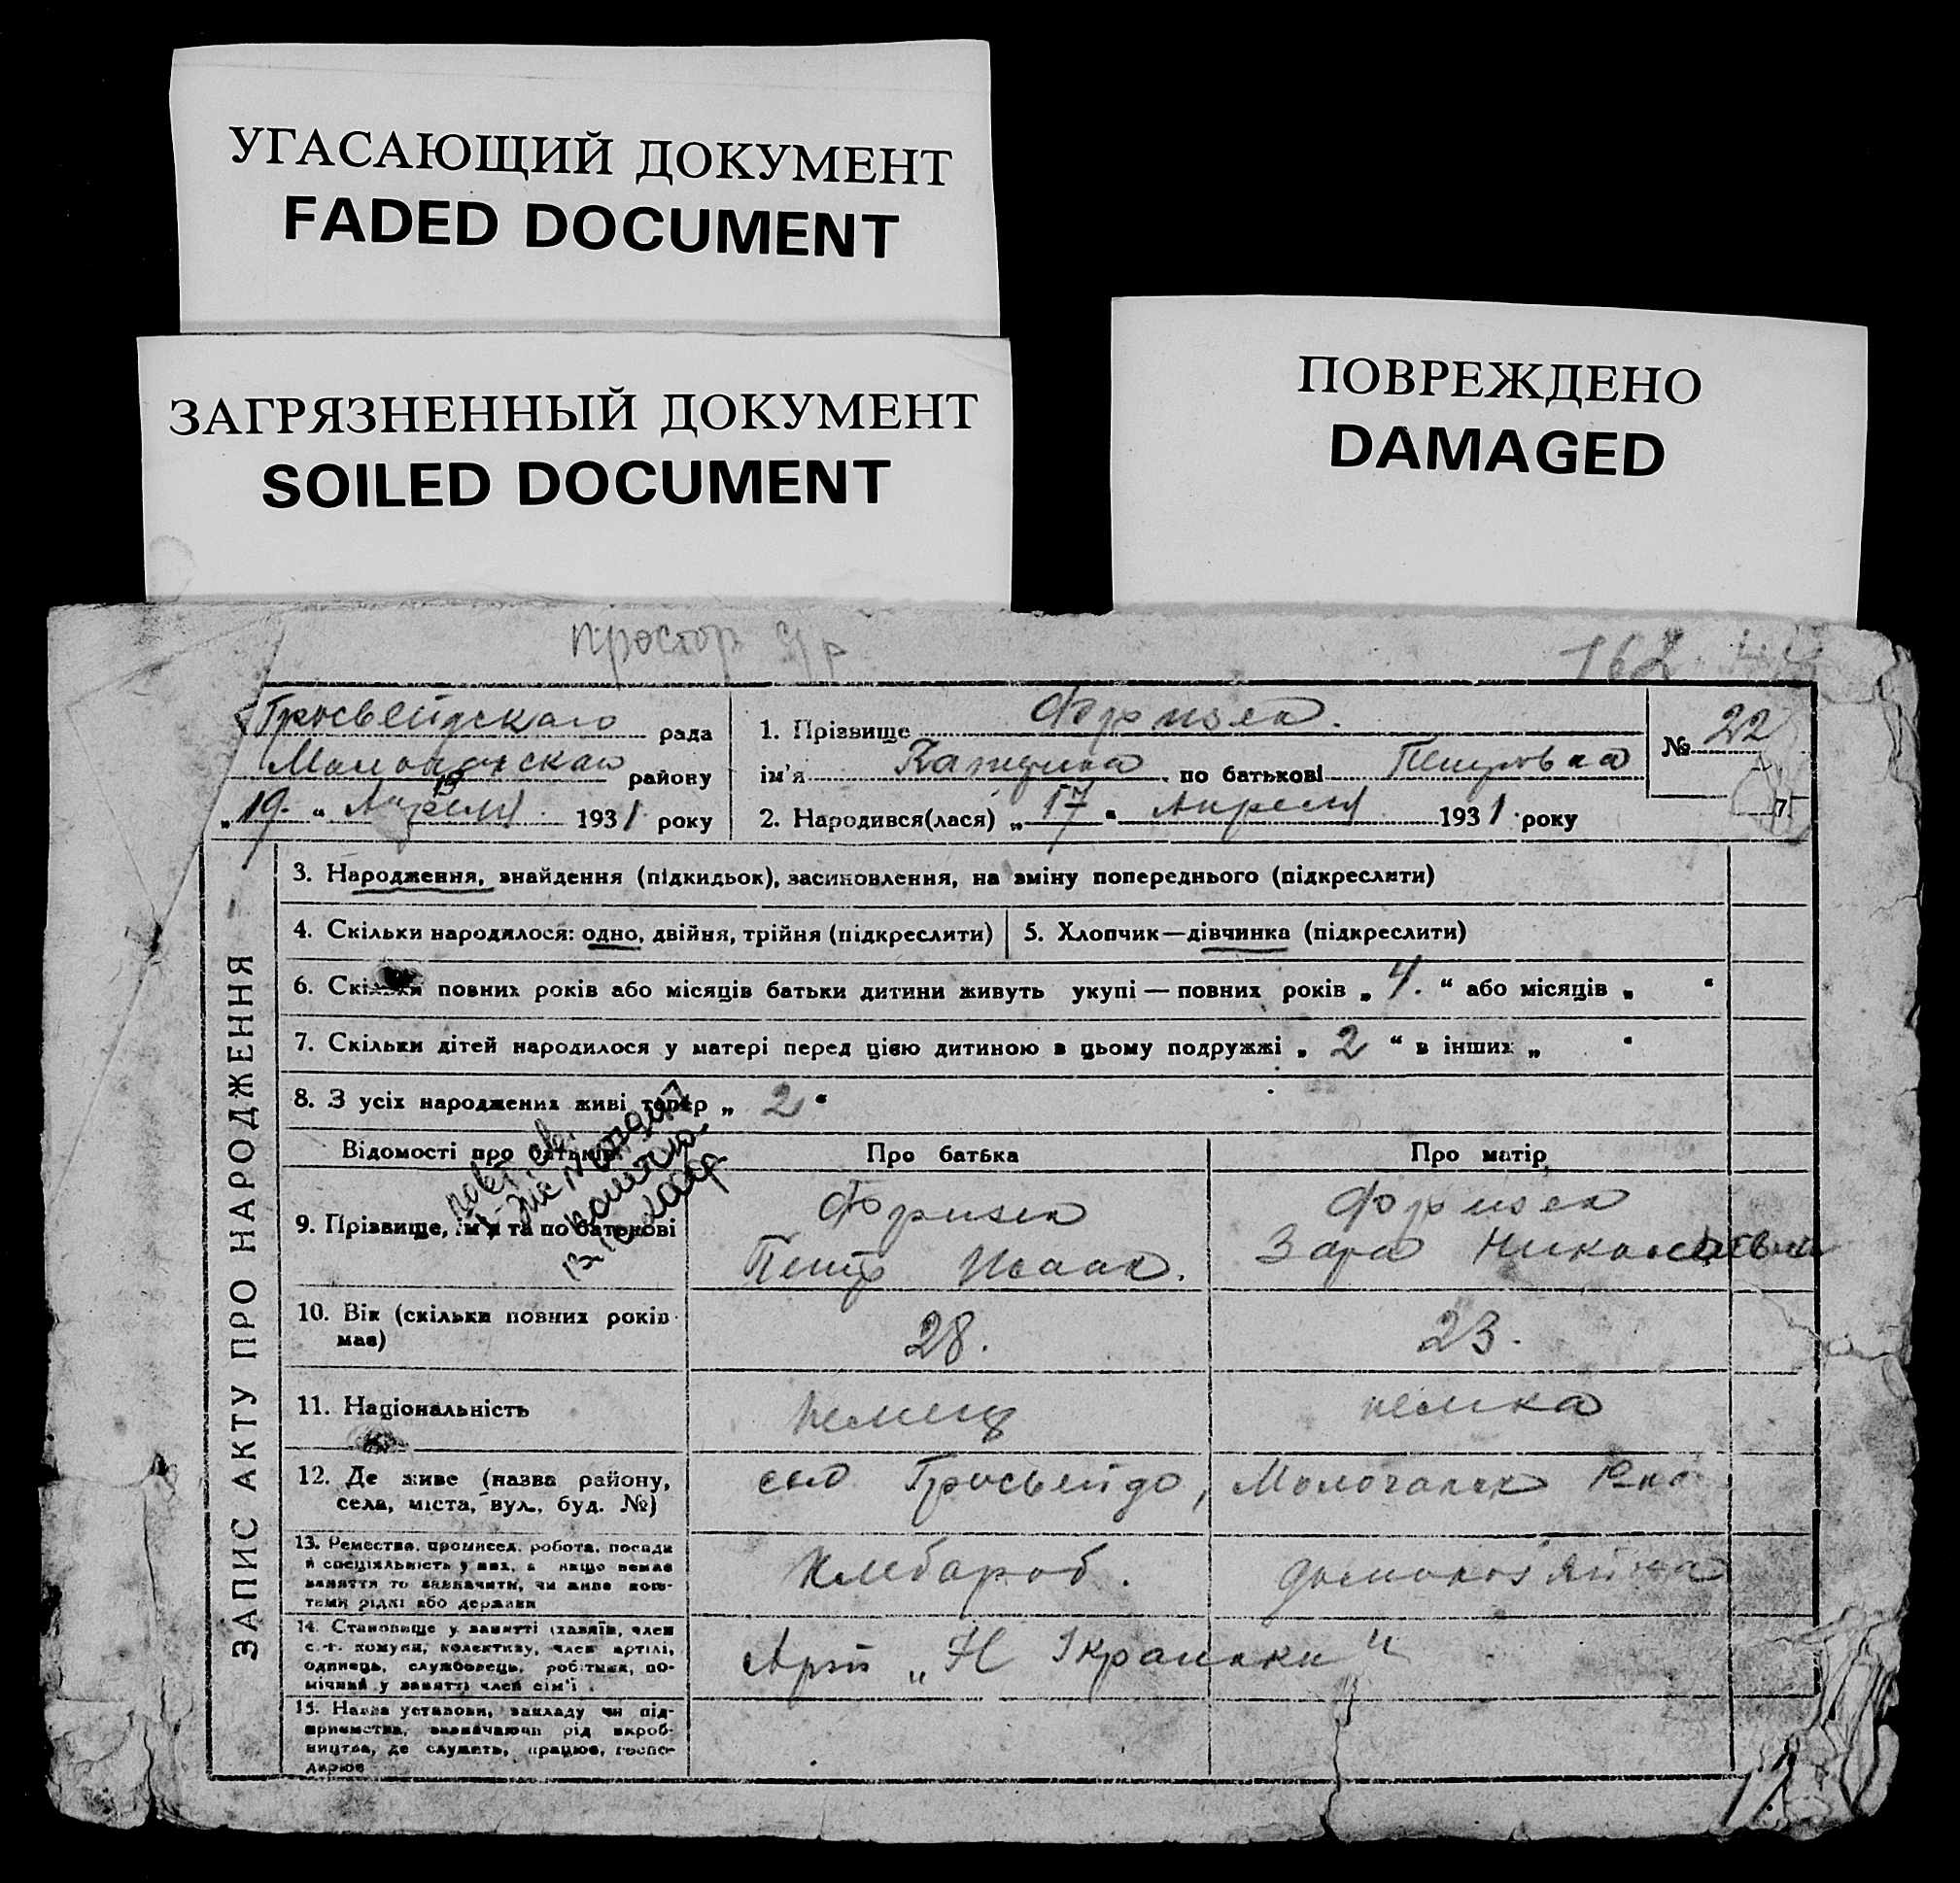 УГАСАЮЩИЙ ДОКУМЕНТ
FADED DOCUMENT
ЗАГРЯЗНЕННЫЙ ДОКУМЕНТ
SOILED DOCUMENT
ПОВРЕЖДЕНО
DAMAGED
простор с/р
162
Гросвейдскаго рада
району
"19." Апреля 1931. року
1. Прізвище Фризен.
ім'я по батькові Петровна
2. Народився(лася) "17" Апреля 1931. року
№ 22
ЗАПИС АКТУ ПРО НАРОДЖЕННЯ
3. Народження, знайдення (підкидьок), засиновлення, на зміну попереднього (підкреслити)
4. Скільки народилося: одно, двійня, трійня (підкреслити)
5. Хлопчик—дівчинка (підкреслити)
6. Скільки повних років або місяців батьки дитини живуть укупі — повних років „ 4. “ або місяців „ “
7. Скільки дітей народилося у матері перед цією дитиною в цьому подружжі „ 2 “ в інших „ “
8. З усіх народжених живі тепер „ 2 “
Відомості про батьків
Про батька
Про матір
9. Прізвище, ім'я та по батькові
Фризен
Петр Исаак.
Фризен
Зара Николаевна
10. Вік (скільки повних років має)
28.
23.
11. Національність
немец
немка
12. Де живе (назва району,
села, міста, вул., буд. №)
село Гросвейде, Молочанск р-на
13. Ремество, промисел, робота, посада
й спеціяльність у них, а якщо немає
заняття то зазначити, чи живе кош-
тами рідні або держави
Хлебароб.
домохозяйка
14. Становище у занятті (хазяїн, член
с.-г. комуни, колективу, член артілі,
одинець, службовець, робітник, по-
мічний у занятті член сім'ї
Арт „Н Украинки“
15. Назва установи, закладу чи під-
приємства, зазначаючи рід вироб-
ництва, де служить, працює, госпо-
дарює